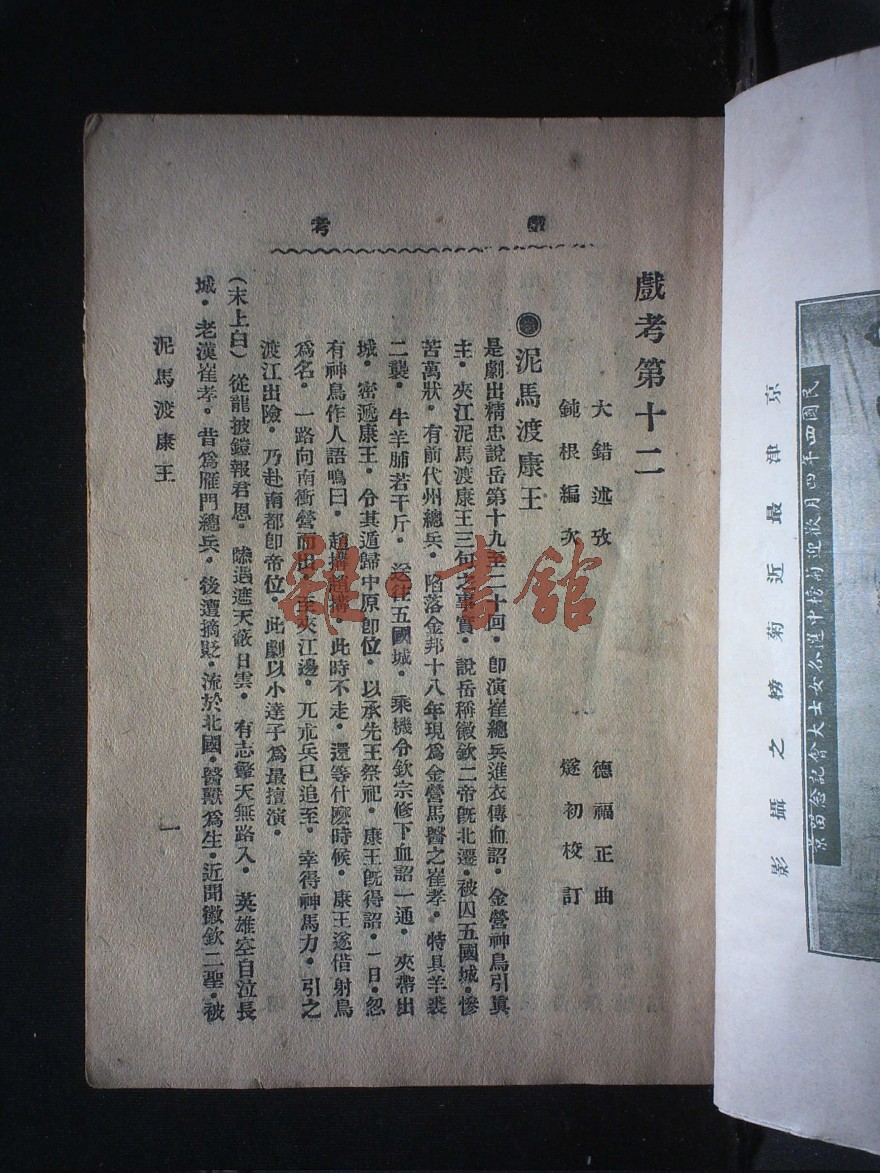 京津最近菊榜之攝影
民國四年四月歡迎菊榜中選各女士大會記念 苗京
戲考
戲考第十二
大錯述攷 德福正曲
鈍根編次 燧初校訂
泥馬渡康王
是劇出精忠說岳第十九至二十回•卽演崔總兵進衣傳血詔•金營神鳥引眞
主•夾江泥馬渡康王三句之事實•說岳稱徽欽二帝旣北遷•被囚五國城•慘
苦萬狀•有前代州總兵•陷落金邦十八年現爲金營馬醫之崔孝•特具羊裘
二襲•牛羊脯若干斤•送往五國城•乘機令欽宗修下血詔一通•夾帶出
城•密遞康王•令其遁歸中原卽位•以承先王祭祀•康王旣得詔•一日•忽
有神鳥作人語鳴曰•趙構趙構•此時不走•還等什麼時候•康王遂借射鳥
爲名•一路向南衝營而出•至夾江邊•兀朮兵已追至•幸得神馬力•引之
渡江出險•乃赴南都卽帝位•此劇以小達子爲最擅演•
(末上白)從龍披鎧報君恩•隨遇遮天蔽日雲•有志擎天無路入•英雄空自泣長
城•老漢崔孝•昔爲雁門總兵•後遭摘貶•流於北國•醫獸爲生•近聞徽欽二聖•被
泥馬渡康王
一
雜•書館